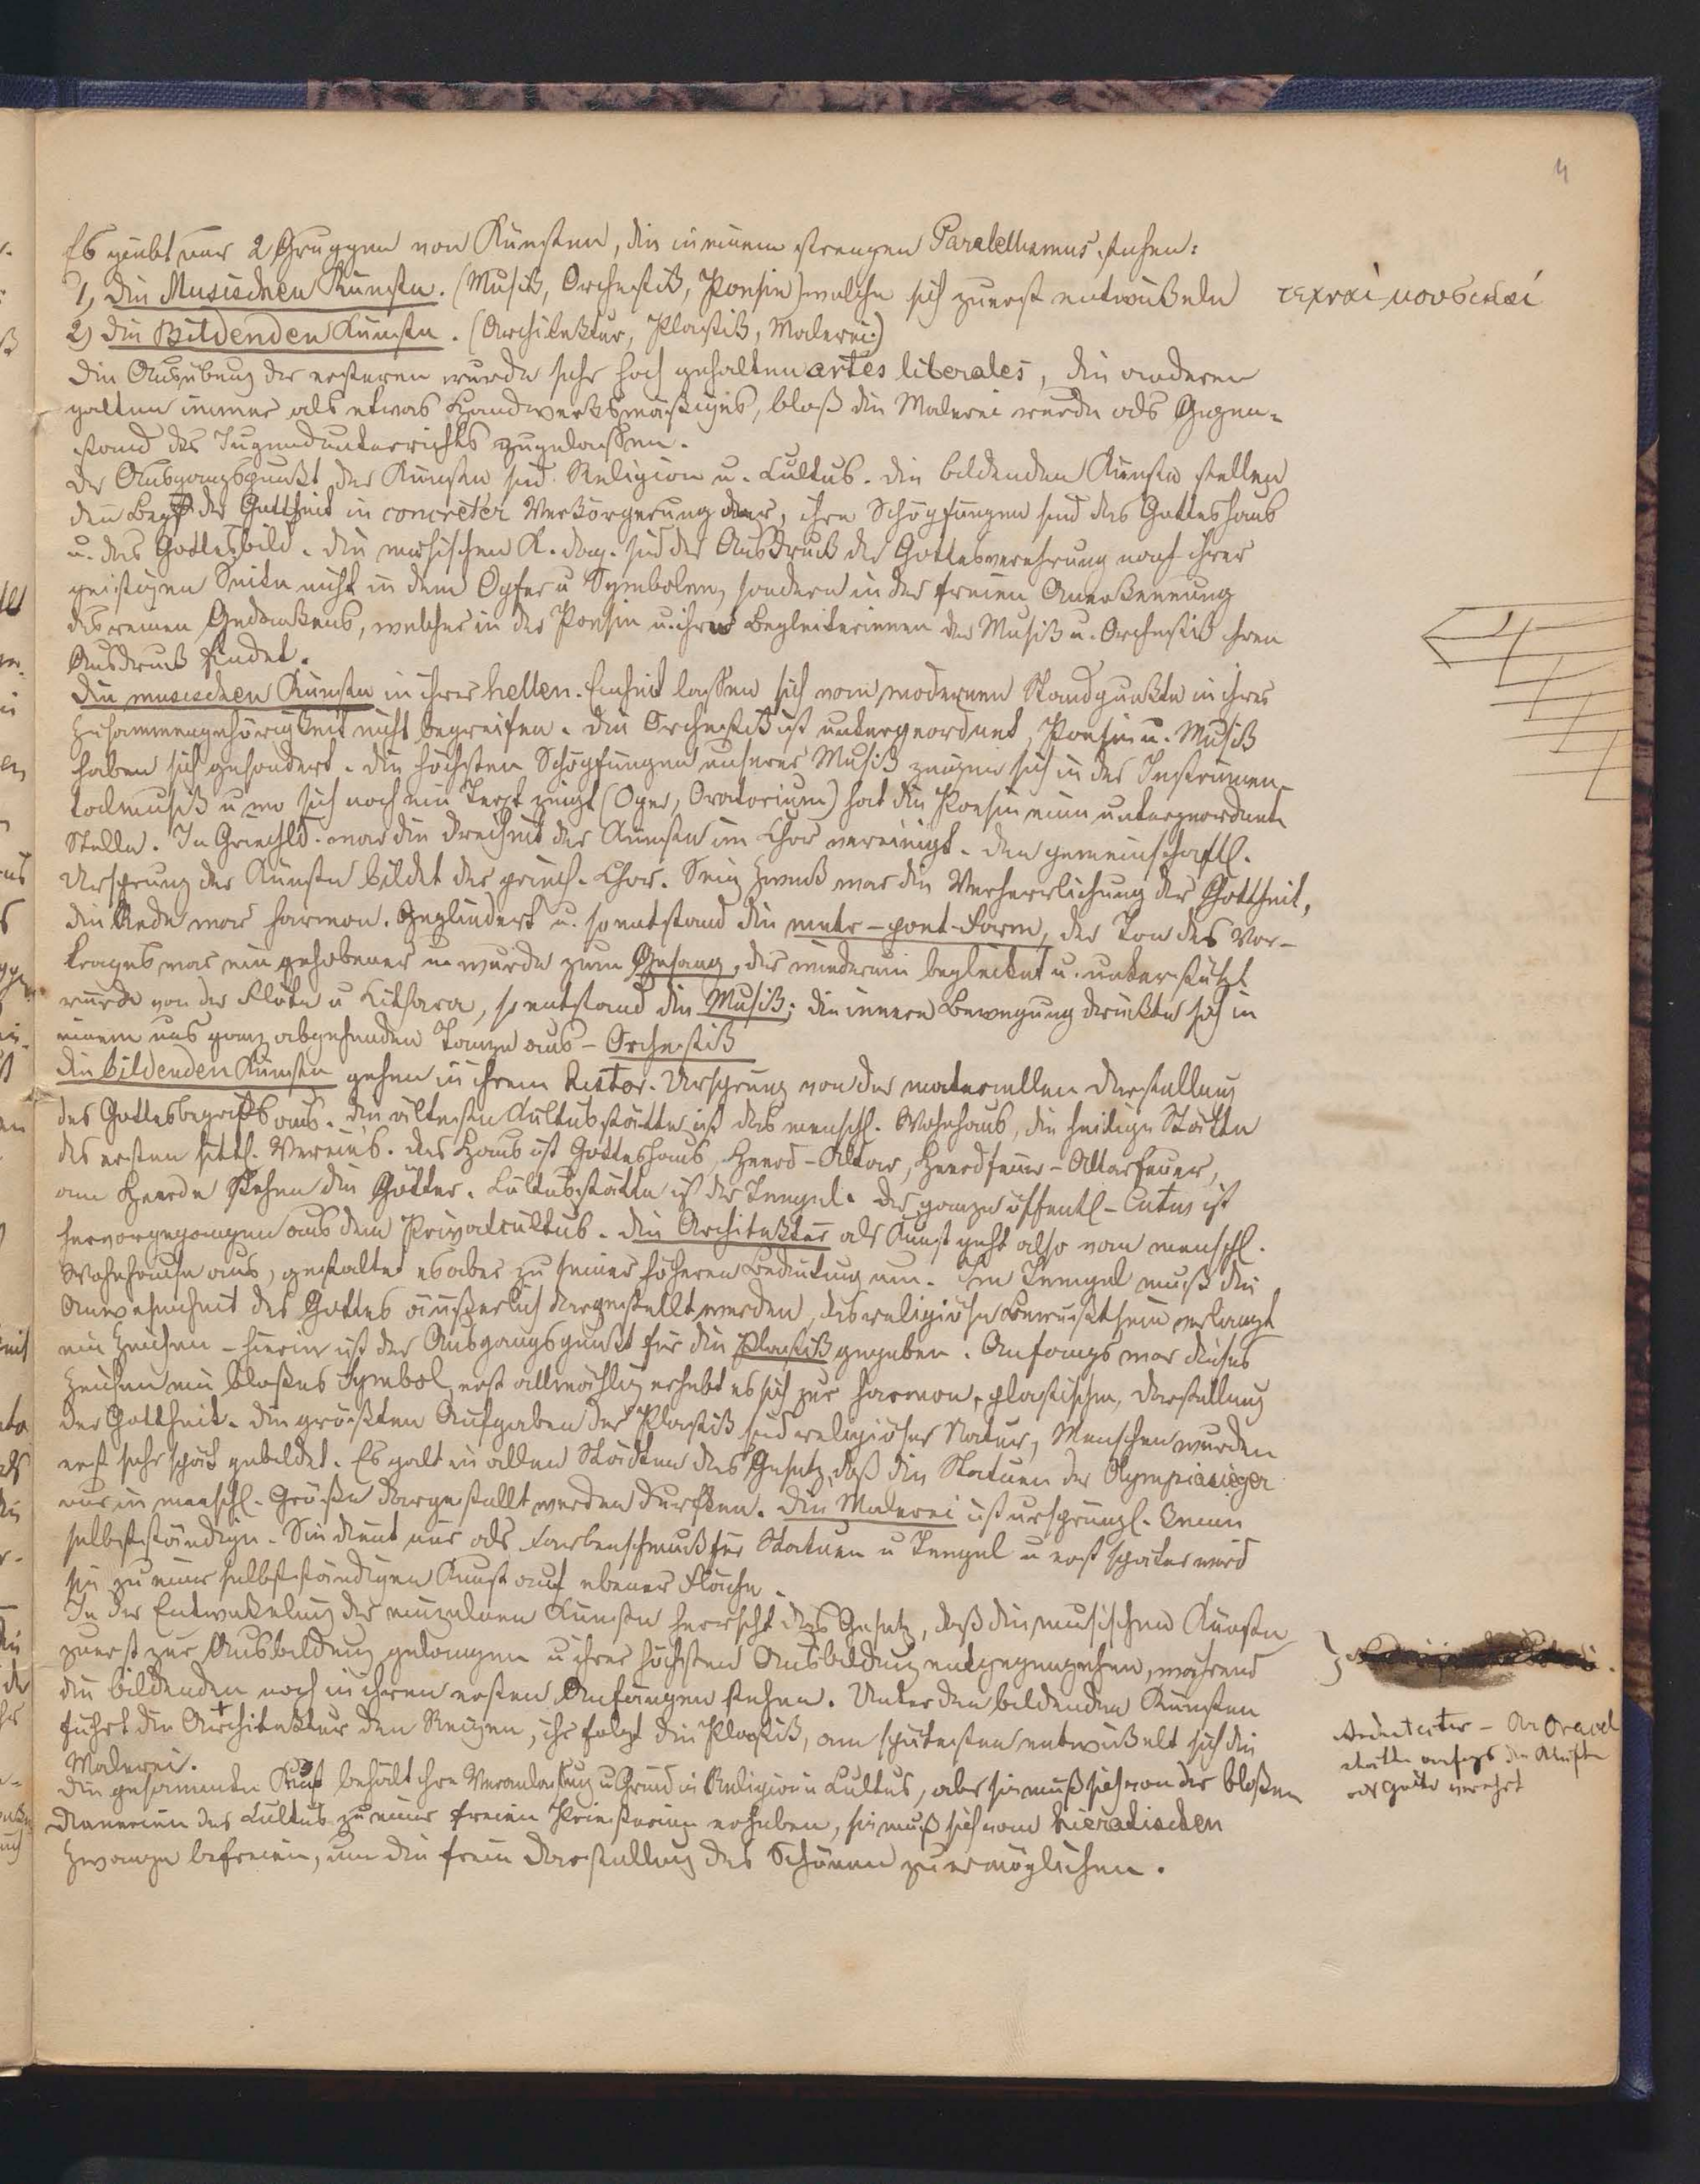 4
Es giebt nur 2 Gruppen von Künsten, die in einem strengen Parallelismus stehen:
1, Die Musischen Künste. (Musik, Orchestik, Poesie) welche sich zuerst entwickeln
τεχναί μουσικαί
2) Die Bildenden Künste. (Architektur, Plastik, Malerei)
Die Ausübung der ersteren wurde sehr hoch gehalten artes liberales, die anderen
galten immer als etwas Handwerksmäßiges, bloß die Malerei wurde als Gegen-
stand des Jugendunterrichts zugelassen.
Der Ausgangspunkt der Künste sind Religion u. Cultus. Die bildenden Künste stellen
den Begr. der Gottheit in concreter Verkörperung dar, ihre Schöpfungen sind das Gotteshaus
u. das Gottesbild. Die musischen K. dag. sind der Ausdruck der Gottesverehrung nach ihrer
geistigen Seite nicht in dem Opfer u Symbolen, sondern in der freien Anerkennung
des reinen Gedankens, welcher in der Poesie u. ihren Begleiterinnen der Musik u. Orchestik ihren
Ausdruck findet.
Die musischen Künste in ihrer hellen. Einheit lassen sich vom modernen Standpunkte in ihrer
Zusammengehörigkeit nicht begreifen. Die Orchestik ist untergeordnet, Poesie u. Musik
haben sich gesondert. Die höchsten Schöpfungen unserer Musik zeigen sich in der Instrumen
talmusik u wo sich noch ein Text zeigt (Oper, Oratorium) hat die Poesie eine untergeordnete
Stelle. In Griechld. war die Dreiheit der Künste im Chor vereinigt. Den gemeinschaftl.
Ursprung der Künste bildet der griech. Chor. Sein Zweck war die Verherrlichung der Gottheit,
die Rede war harmon. Gegliedert u. so entstand die metr-poet-Form, der Ton des Vor-
trages war ein gehobener u wurde zum Gesang, der wiederum begleitet u. unterstützt
wurde von der Flöte u Kithara, so entstand die Musik; die innere Bewegung drückte sich in
einem uns ganz abgehenden Tanze aus - Orchestik
Die bildenden Künste gehen in ihrem histor. Ursprung von der materiellen Darstellung
des Gottesbegriffs aus. Die älteste Kultusstätte ist das menschl. Wohnhaus, die heilige Stätte
des ersten sittl. Vereins. Das Haus ist Gotteshaus, Heerd - Altar, Heerdfeuer - Altarfeuer,
am Heerde stehen die Götter. Cultusstätte ist der Tempel. Der ganze öffentl- Cultus ist
hervorgegangen aus dem Privatcultus. Die Architektur als Kunst geht also vom menschl.
Wohnhause aus, gestaltet es aber zu seiner höheren Bedeutung um. Im Tempel muß die
Anwesenheit des Gottes äußerlich dargestellt werden, das religiöse Bewußtsein verlangt
ein Zeichen - hierin ist der Ausgangspunkt für die Plastik gegeben. Anfangs war dieses
Zeichen ein bloßes Symbol, erst allmählig erhebt es sich zur harmon. plastischen Darstellung
der Gottheit. Die größten Aufgaben der Plastik sind religiöser Natur, Menschen wurden
erst sehr spät gebildet. Es galt in allen Städten das Gesetz, daß die Statuen der Olympiasieger
nur in menschl. Größe dargestellt werden durften. Die Malerei ist ursprüngl. keine
selbstständige. Sie dient nur als Farbenschmuck für Statuen u Tempel u erst später wird
sie zu einer selbstständigen Kunst auf ebener Fläche.
In der Entwickelung der einzelnen Künste herrscht das Gesetz, daß die musischen Künste
zuerst zur Ausbildung gelangen u ihrer höchsten Ausbildung entgegengehen, während
die bildenden noch in ihren ersten Anfängen stehen. Unter den bildenden Künsten
führt die Architektur den Reigen, ihr folgt die Plastik, am spätesten entwickelt sich die
Malerei.
Die gesammte Kunst behält ihre Veranlassung u Grund in Religion u Cultus, aber sie muß sich von der bloßen
Dienerin des Cultus zu einer freien Priesterin erheben, sie muß sich vom hieratischen
Zwange befreien, um die freie Darstellung des Schönen zu ermöglichen.
Architectur -
anfangs die Klüfte
als Götter verehrt